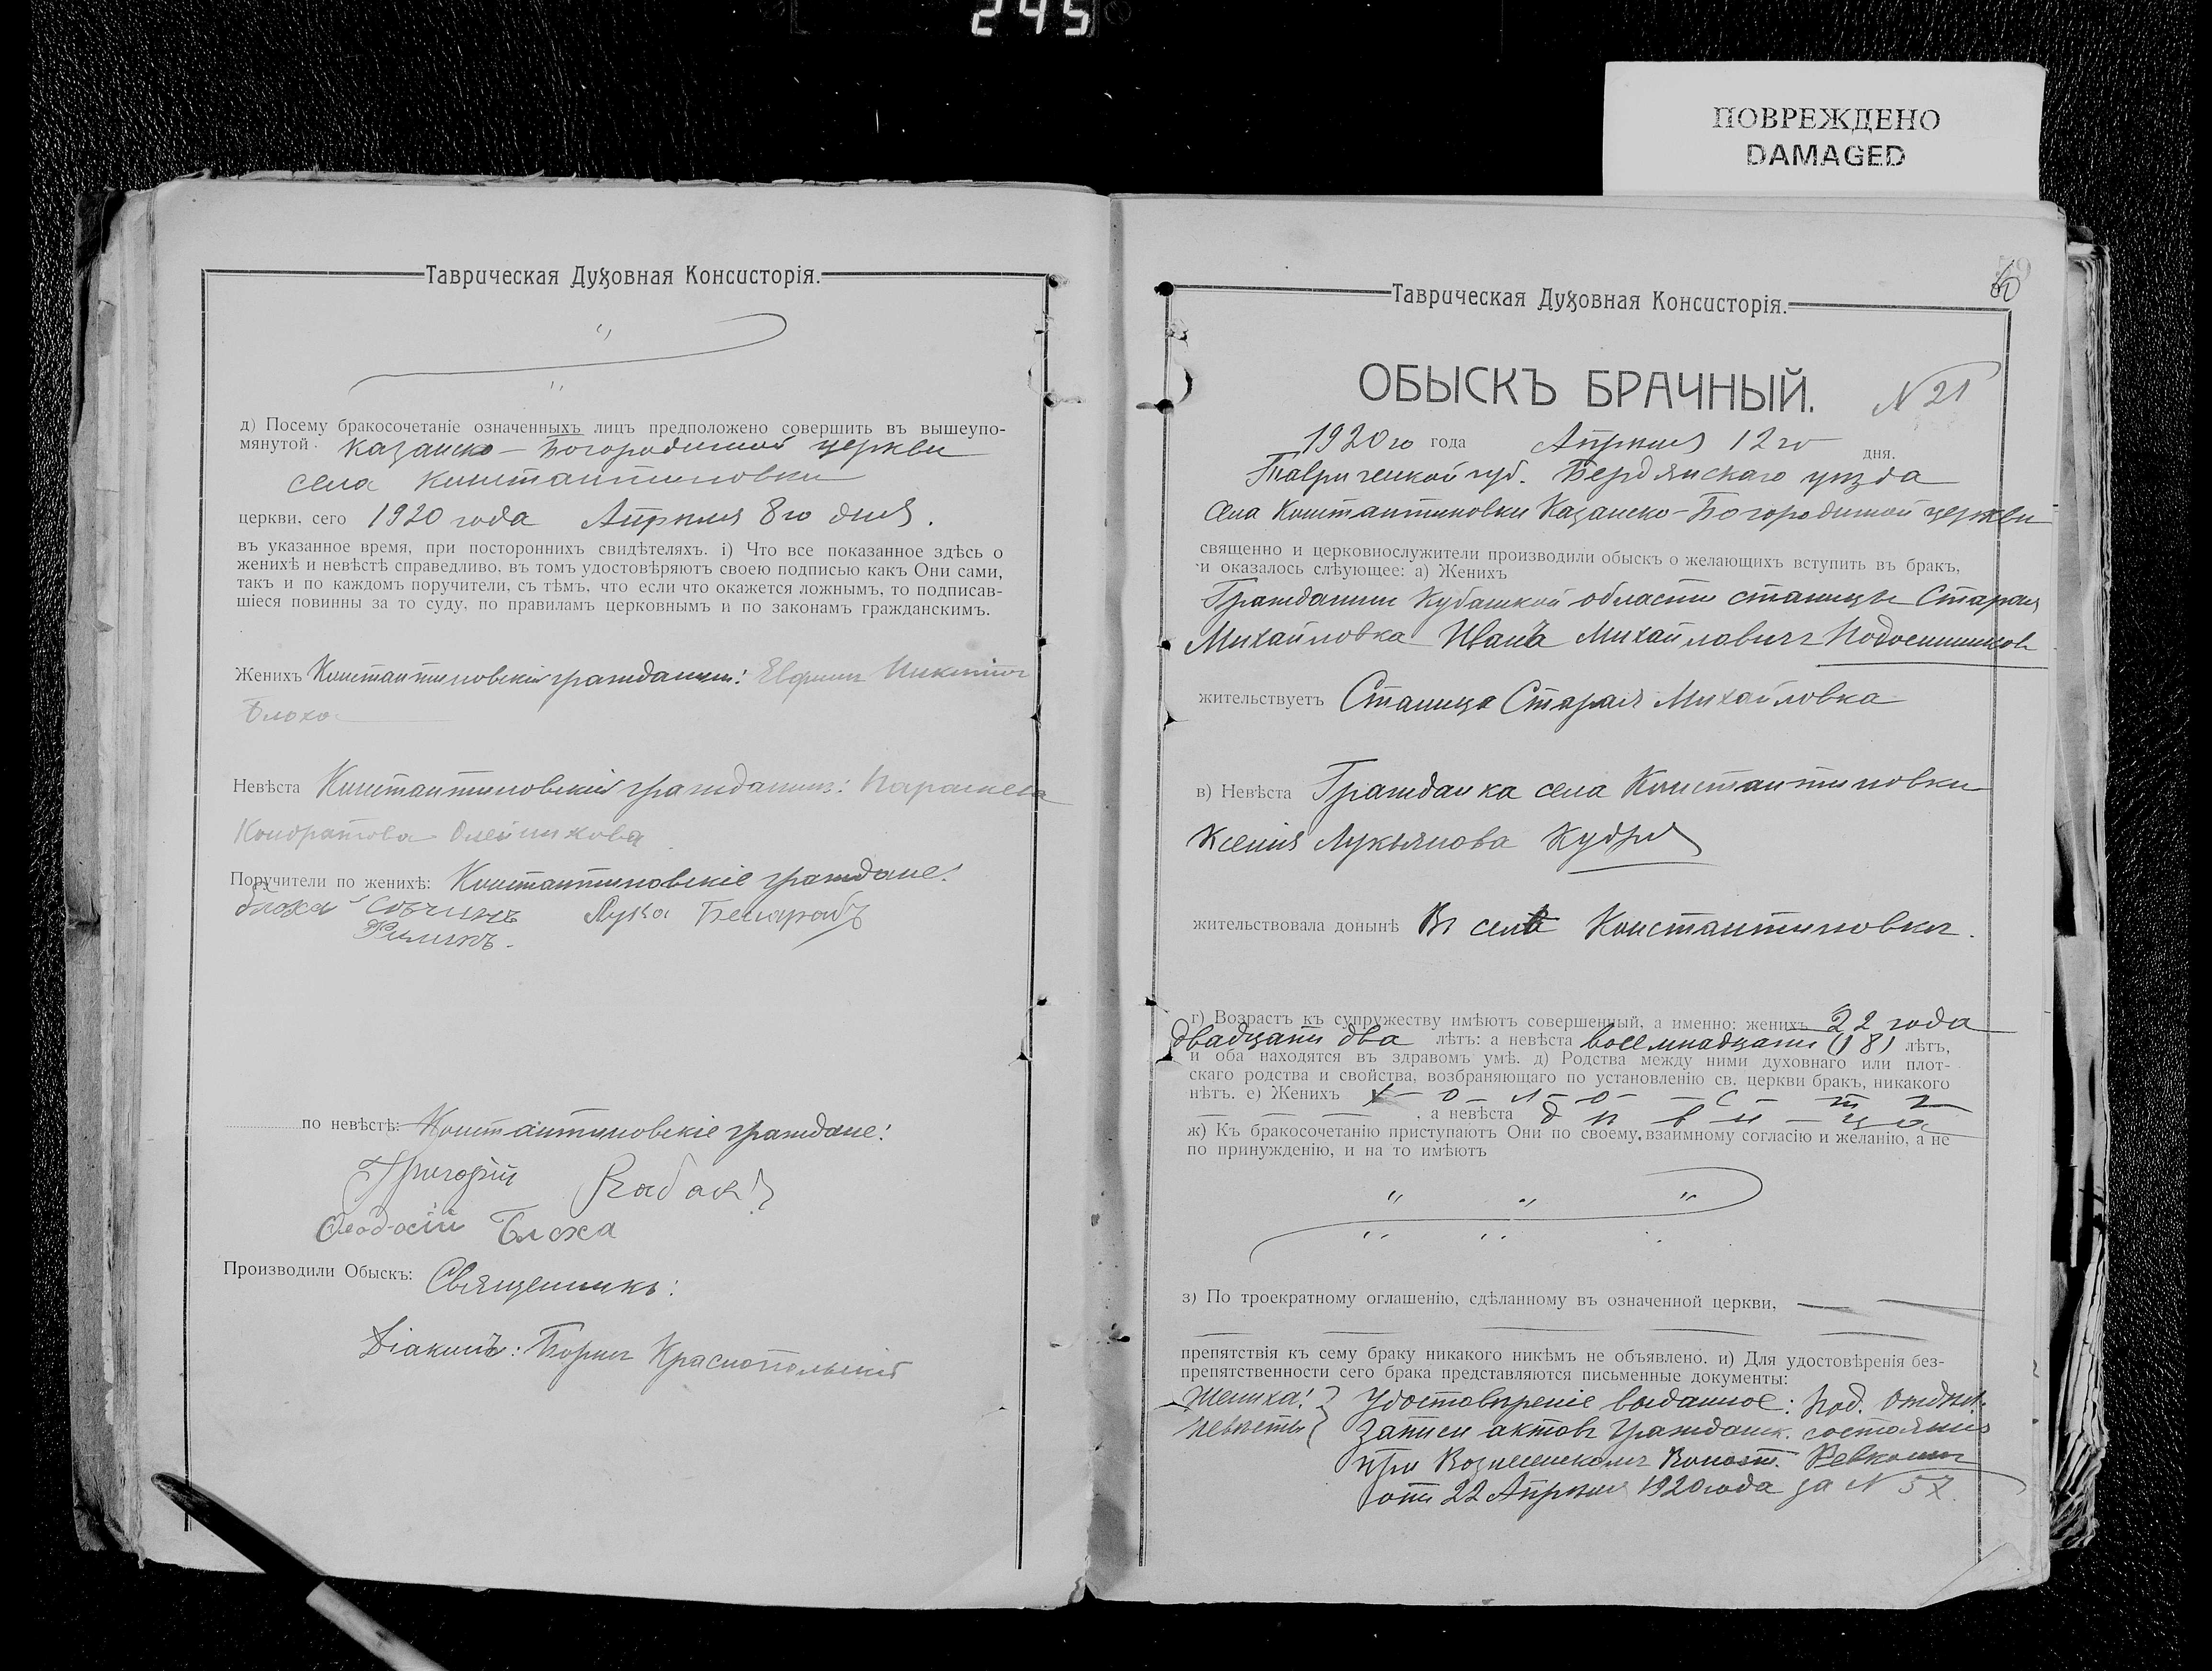 245
ПОВРЕЖДЕНО
DAMAGED
Таврическая Духовная Консисторія.
д) Посему бракосочетаніе означенныхъ лицъ предположено совершить въ вышеупо-
мянутой Казанско-Богородичной церкви
села Константиновки
церкви, сего 1920 года Апрѣля 8го дня.
въ указанное время, при постороннихъ свидѣтеляхъ. і) Что все показанное здѣсь о
женихѣ и невѣстѣ справедливо, въ томъ удостовѣряютъ своею подписью какъ Они сами,
такъ и по каждомъ поручители, съ тѣмъ, что если что окажется ложнымъ, то подписав-
шіеся повинны за то суду, по правиламъ церковнымъ и по законамъ гражданскимъ.
Женихъ Константиновскій гражданинъ: Евфимъ Никитинъ
Блоха
Невѣста Константиновскій гражданинъ: Параскева
Кондратова Олейникова
Поручители по женихѣ: Константиновскіе граждане:
Блоха Лука
по невѣстѣ: Константиновскіе граждане:
Григорій Кабакъ
Феодосій Блоха
Производили Обыскъ: Священникъ:
Діаконъ: Борисъ Краснопольскій
60
Таврическая Духовная Консисторія.
ОБЫСКЪ БРАЧНЫЙ. N 21
1920го года Апрѣля 12го дня.
Таврической губ. Бердянскаго уѣзда
Села Константиновки Казанско-Богородичной церкви
священно и церковнослужители производили обыскъ о желающихъ вступить въ бракъ,
и оказалось слѣующее: а) Женихъ
Гражданинъ Кубанской области станицы Старая
Михайловка Иванъ Михайловичъ
жительствуетъ Станица Старая Михайловка
в) Невѣста Гражданка села Константиновки
Ксенія Лукьянова Кудря
жительствовала донынѣ Въ селѣ Константиновкѣ.
г) Возрастъ къ супружеству имѣютъ совершенный, а именно: женихъ 22 года
двадцати два лѣтъ: а невѣста восемнадцати (18) лѣтъ,
и оба находятся въ здравомъ умѣ. д) Родства между ними духовнаго или плот-
скаго родства и свойства, возбраняющаго по установленію св. церкви бракъ, никакого
нѣтъ. е) Женихъ х-о-л-о-с-т-ъ
, а невѣста д ѣ в и - ца
ж) Къ бракосочетанію приступаютъ Они по своему взаимному согласію и желанію, а не
по принужденію, и на то имѣютъ
" " "
з) По троекратному оглашенію, сдѣланному въ означенной церкви,
препятствія къ сему браку никакого никѣмъ не объявлено. и) Для удостовѣренія без-
препятственности сего брака представляются письменные документы:
Жениха! Удостовѣреніе выданное: Под. Отдѣл.
Невѣсты Записи актовъ гражданск. состоянія
при Вознесенскомъ Волост. Ревкомѣ
отъ 22 Апрѣля 1920 года за N 57.